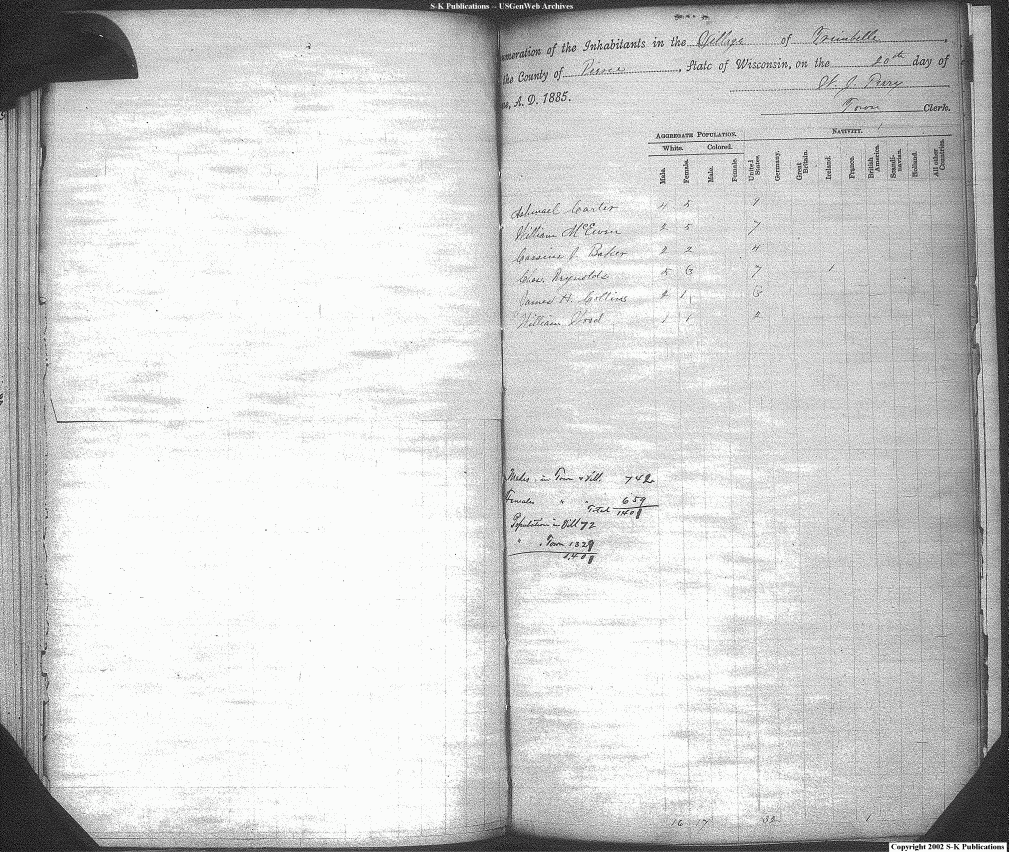 S-K Publications -- USGenWeb Archives
umeration of the Inhabitants in the Village of Trimbelle,
the County of Pierce, State of Wisconsin, on the 20th day of
e, A. D. 1885. J. Perry
Town Clerk.
AGGREGATE POPULATION. NATIVITY.
White. Colored.
Male. Female. Male. Female. United States. Germany. Great Britain. Ireland. France. British America. Scandi-navian. Holland. All other Countries.
Carter 4 5
William McEwen 2 5 7
J. Baker 2 2 4
Chas. Reynolds 5 3 7 1
James H. Collins 2 1 3
William Wood 1 1 2
Males in Town & Vill. 742
Females " " 659
Total 1401
Population in Vill 72
" Town 1329
1401
16 17 32 1
Copyright 2002 S-K Publications